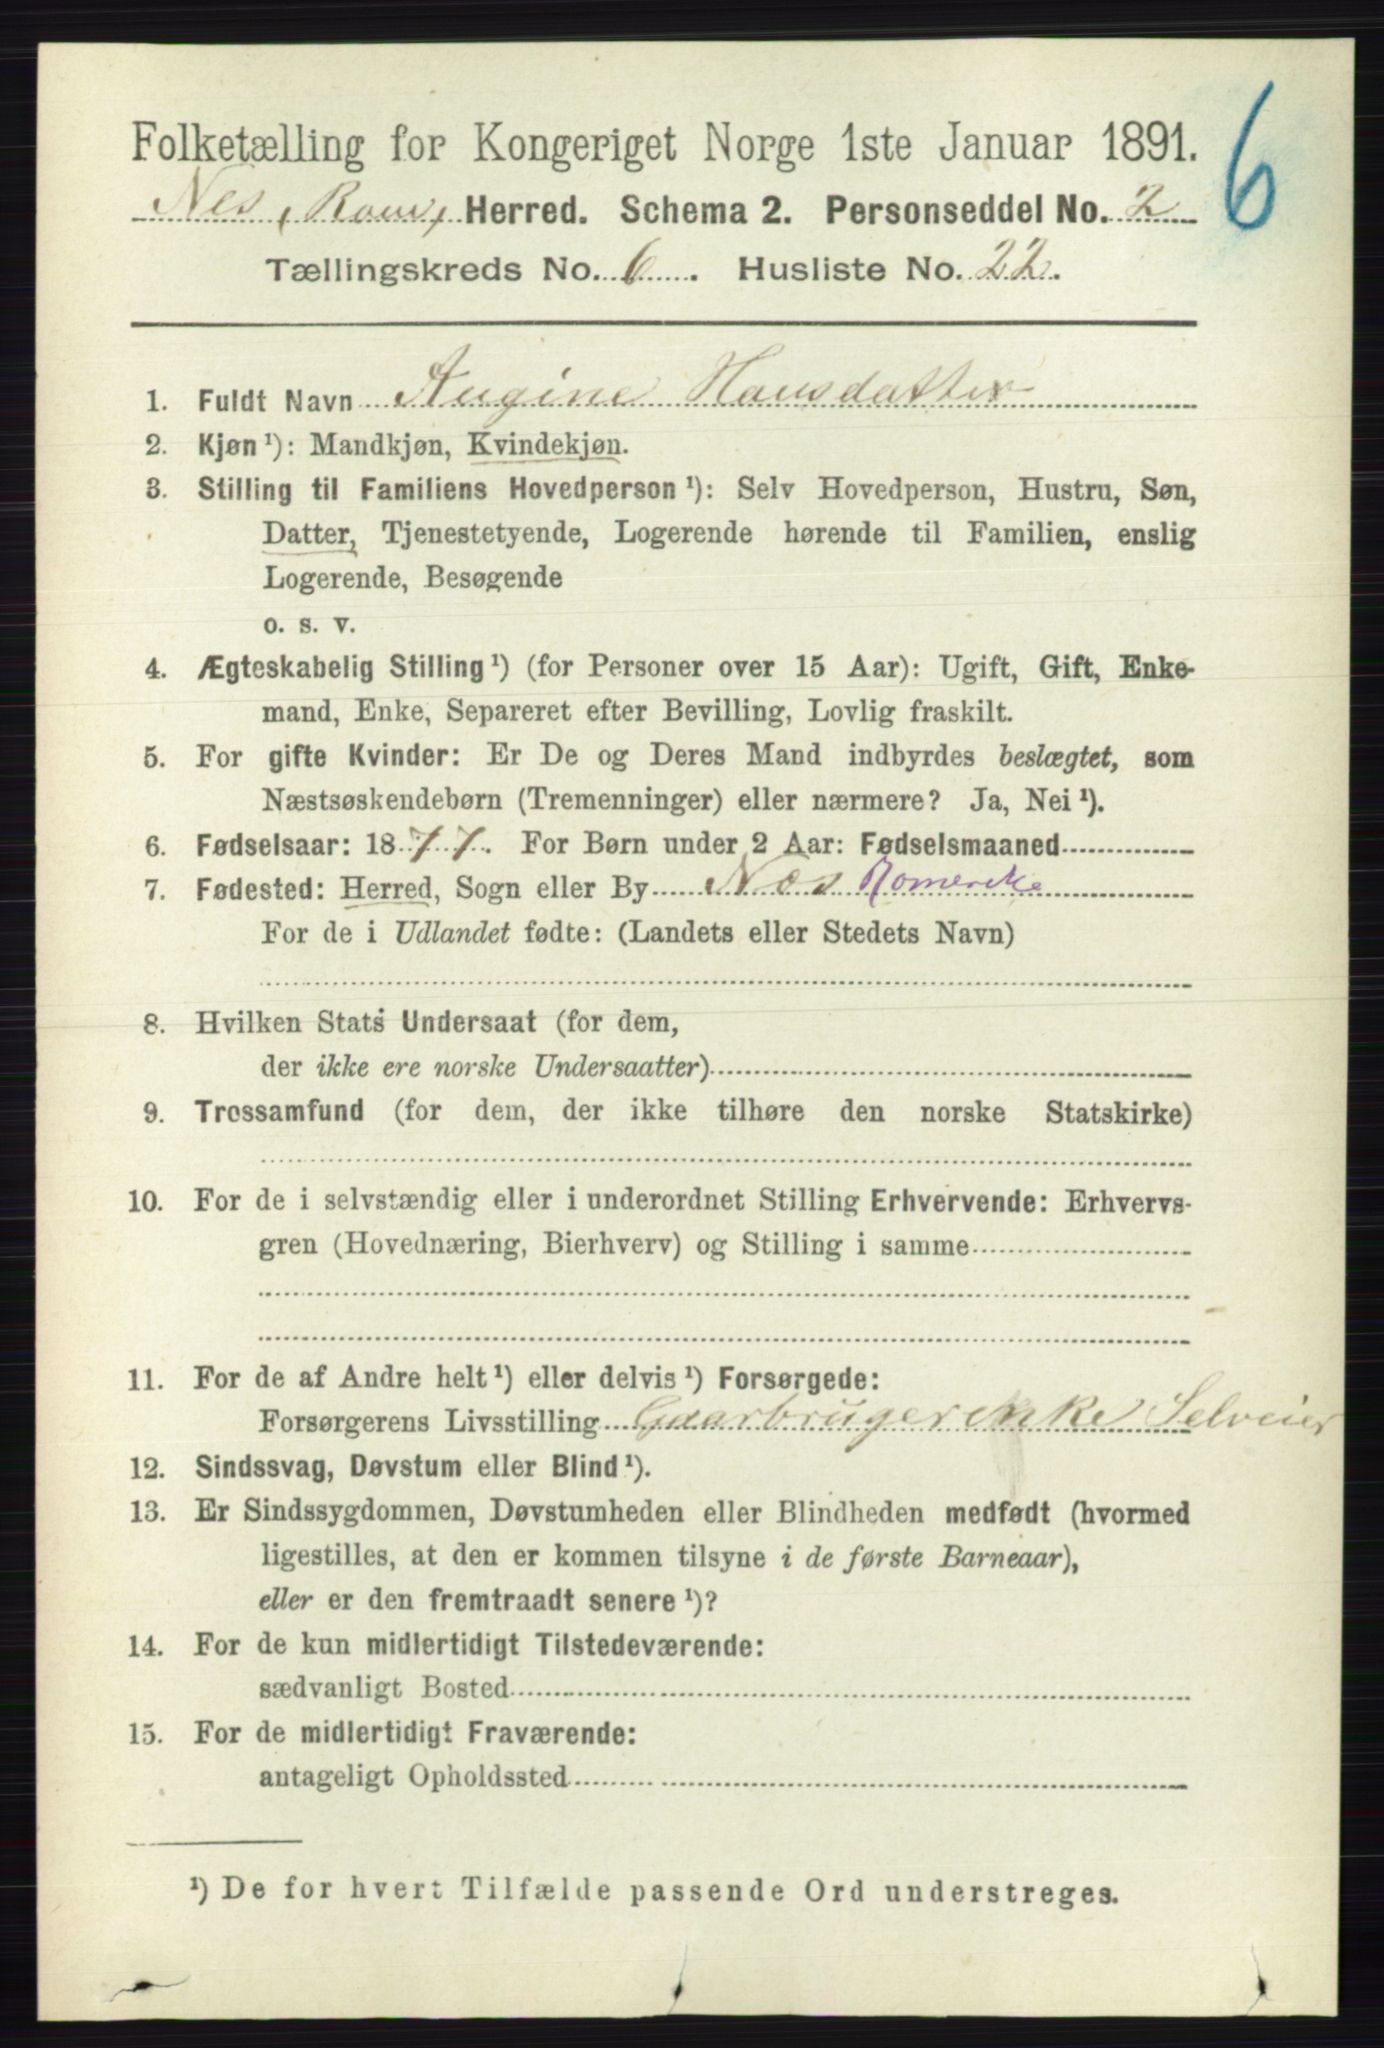 6
Folketælling for Kongeriget Norge 1ste Januar 1891.
Nes, Rom, Herred. Schema 2. Personseddel No. 2
Tællingskreds No. 6. Husliste No. 22.
1. Fuldt Navn Augine Hansdatter
2. Kjøn ¹): Mandkjøn, Kvindekjøn.
3. Stilling til Familiens Hovedperson ¹): Selv Hovedperson, Hustru, Søn,
Datter, Tjenestetyende, Logerende hørende til Familien, enslig
Logerende, Besøgende
o. s. v.
4. Ægteskabelig Stilling ¹) (for Personer over 15 Aar): Ugift, Gift, Enke-
mand, Enke, Separeret efter Bevilling, Lovlig fraskilt.
5. For gifte Kvinder: Er De og Deres Mand indbyrdes beslægtet, som
Næstsøskendebørn (Tremenninger) eller nærmere? Ja, Nei ¹).
6. Fødselsaar: 1877. For Børn under 2 Aar: Fødselsmaaned
7. Fødested: Herred, Sogn eller By Næs Romerike
For de i Udlandet fødte: (Landets eller Stedets Navn)
8. Hvilken Stats Undersaat (for dem,
der ikke ere norske Undersaatter)
9. Trossamfund (for dem, der ikke tilhøre den norske Statskirke)
10. For de i selvstændig eller i underordnet Stilling Erhvervende: Erhvervs-
gren (Hovednæring, Bierhverv) og Stilling i samme
11. For de af Andre helt ¹) eller delvis ¹) Forsørgede:
Forsørgerens Livsstilling Gaarbrugerenke Selveier
12. Sindssvag, Døvstum eller Blind ¹).
13. Er Sindssygdommen, Døvstumheden eller Blindheden medfødt (hvormed
ligestilles, at den er kommen tilsyne i de første Barneaar),
eller er den fremtraadt senere ¹)?
14. For de kun midlertidigt Tilstedeværende:
sædvanligt Bosted
15. For de midlertidigt Fraværende:
antageligt Opholdssted
¹) De for hvert Tilfælde passende Ord understreges.